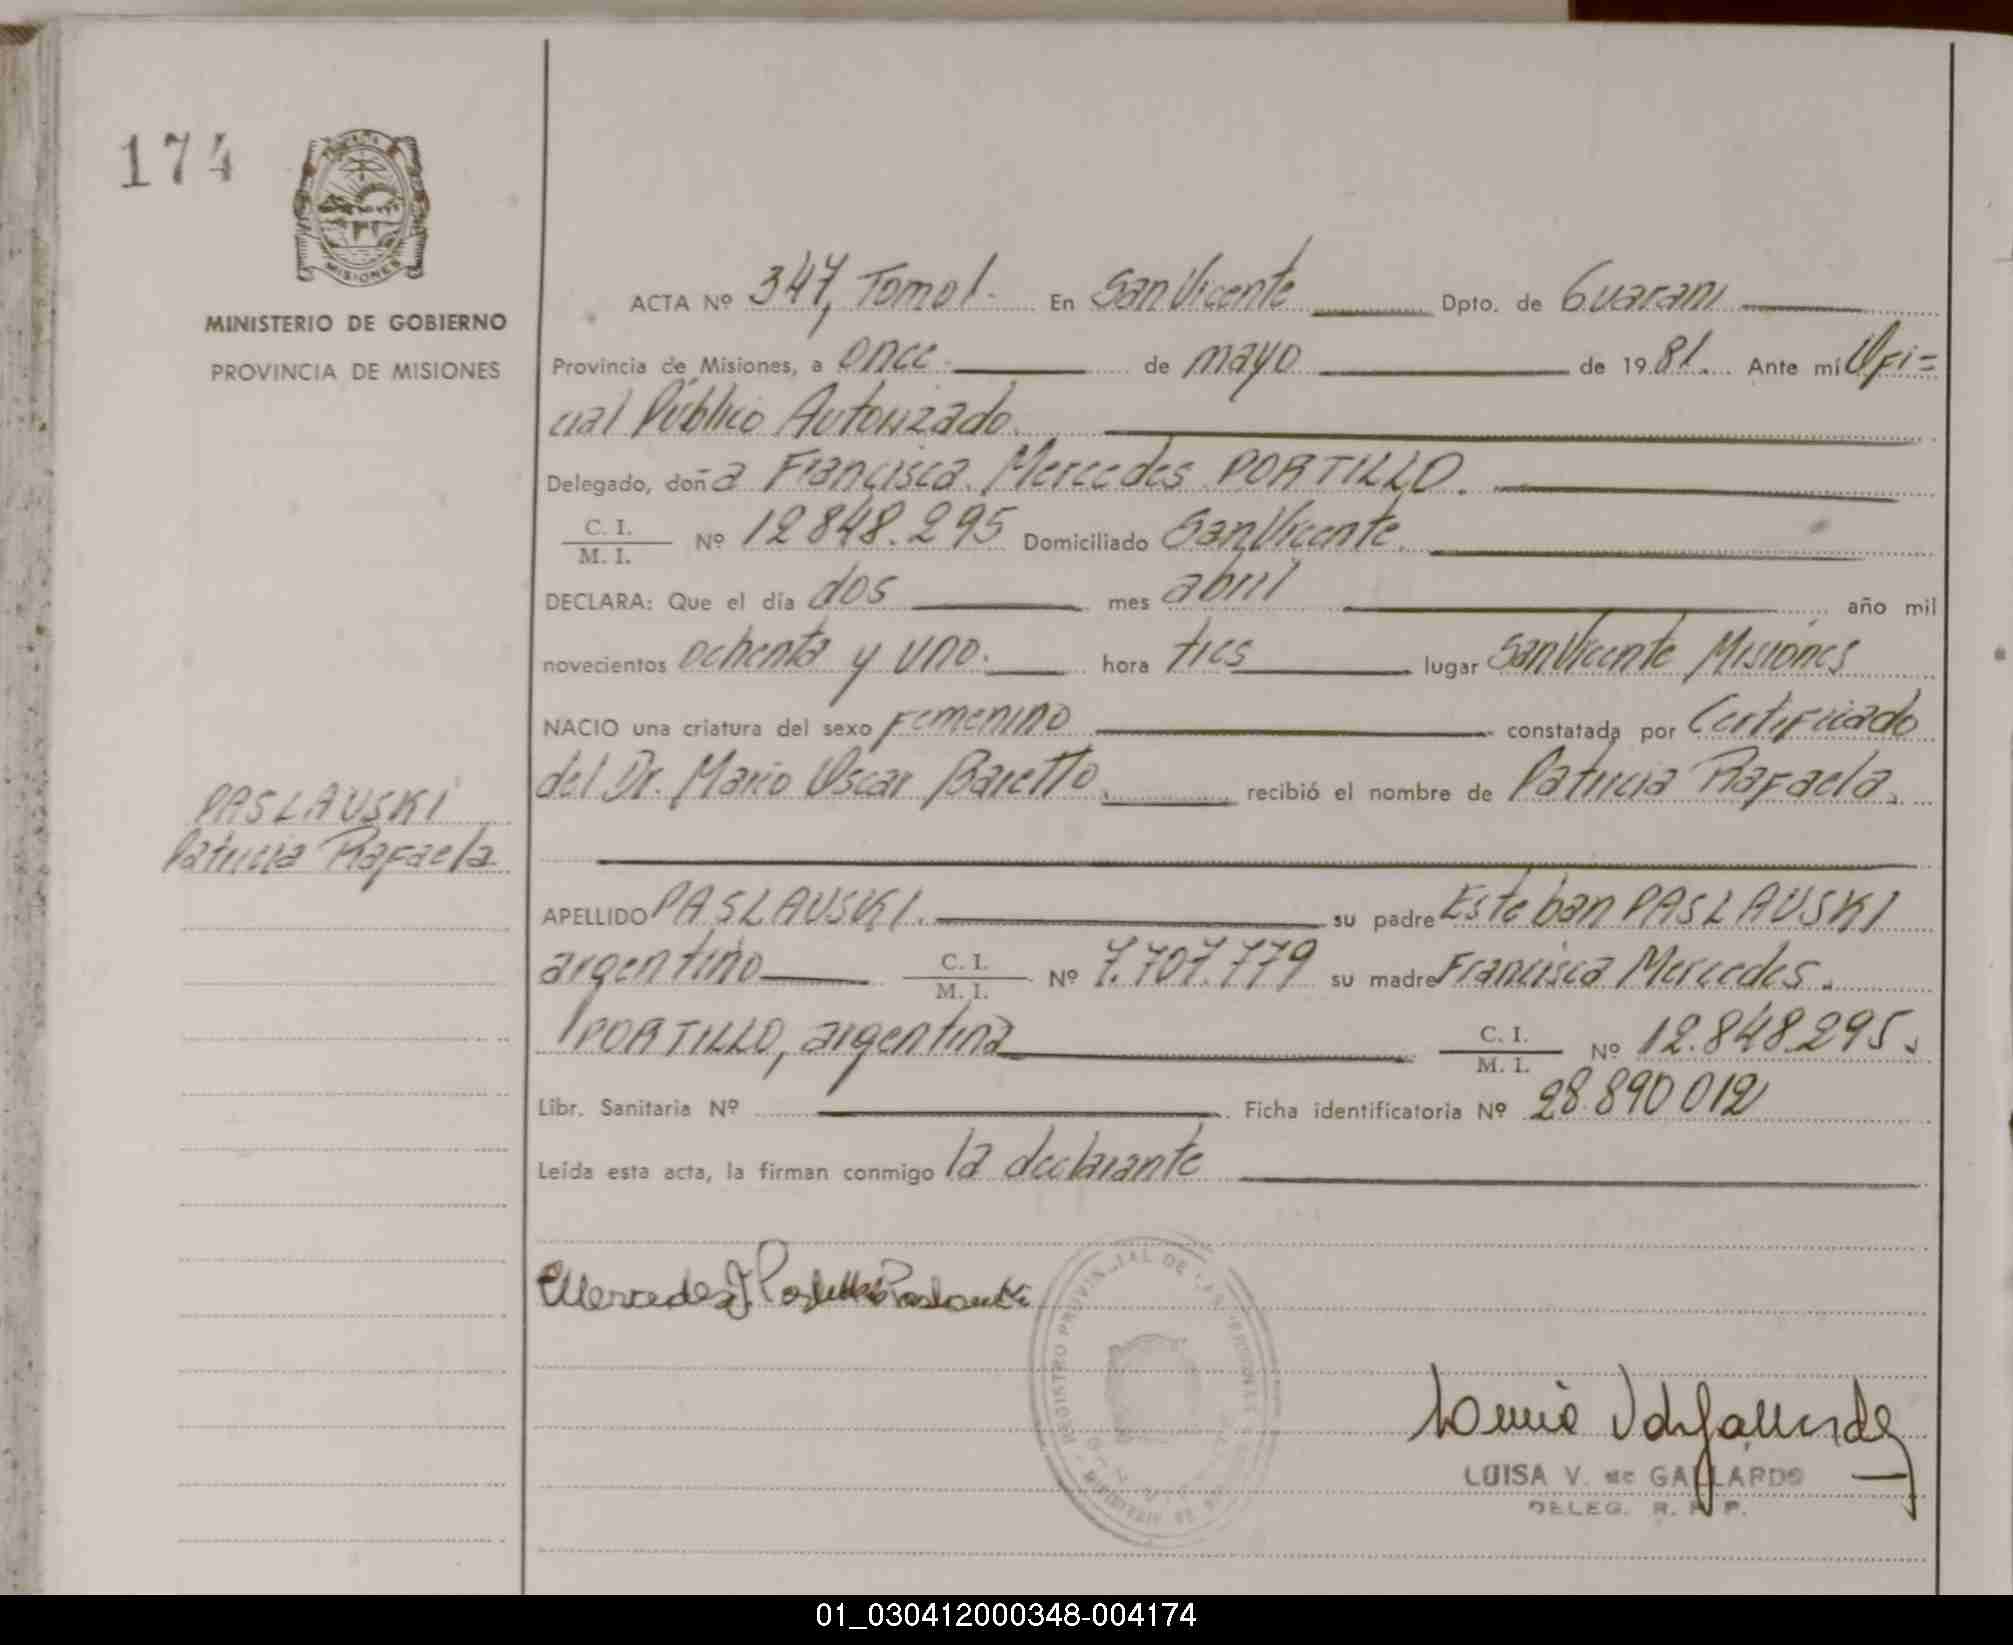 174
MISIONES
MINISTERIO DE GOBIERNO
PROVINCIA DE MISIONES
PASLAUSKI
Patricia Rafaela
ACTA Nº 347, Tomo I. En San Vicente Dpto. de Guarani
Provincia de Misiones, a once de mayo de 1981. Ante mí Ofi=
cial Público Autorizado.
Delegado, doña Francisca Mercedes PORTILLO.
C. I.
M. I. Nº 12848.295 Domiciliado San Vicente.
DECLARA: Que el día dos mes abril año mil
novecientos ochenta y uno. hora tres lugar San Vicente Misiones
NACIO una criatura del sexo femenino constatada por Certificado
del Dr. Mario Oscar Baretto. recibió el nombre de Patricia Rafaela.
APELLIDO PASLAUSKI. su padre Esteban PASLAUSKI
argentino C. I. M. I. Nº 7.707.779 su madre Francisca Mercedes
PORTILLO, argentina C. I. M. I. Nº 12.848.295.
Libr. Sanitaria Nº Ficha identificatoria Nº 28.890012
Leída esta acta, la firman conmigo la declarante
Mercedes F. Portillo de Paslauski
REGISTRO PROVINCIAL DE LAS PERSONAS
LUISA V. de GALLARDO
DELEG. R. P. P.
01_030412000348-004174